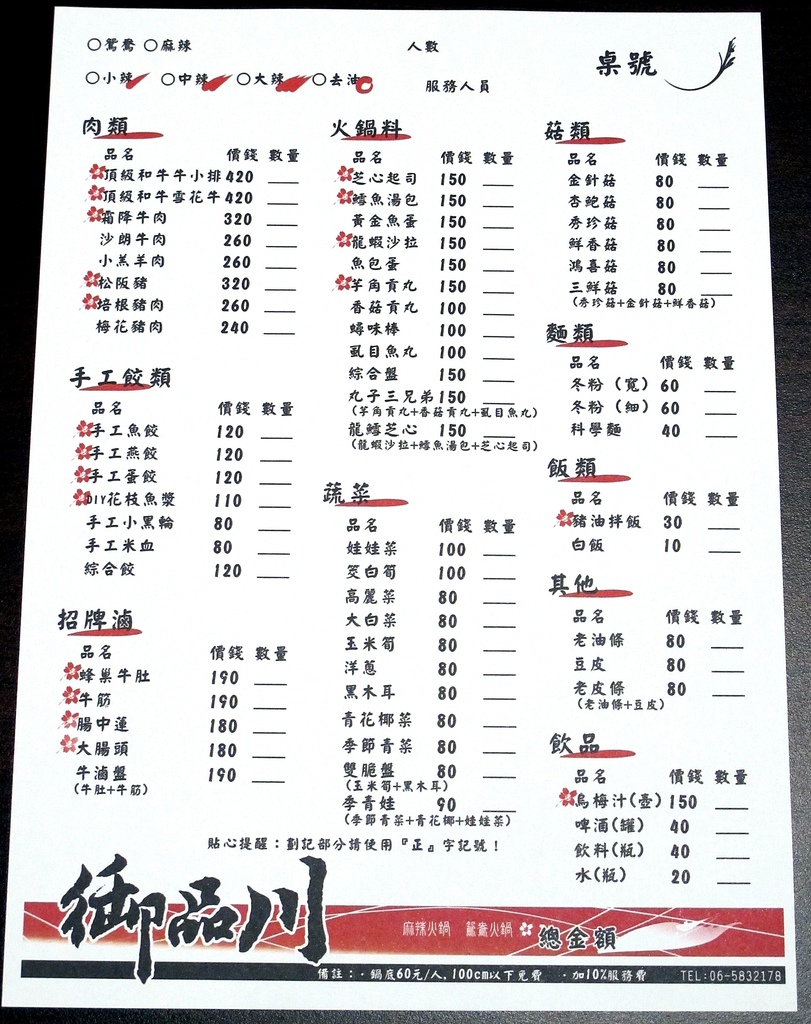 ○鴛鴦 ○麻辣
人數
桌號
○小辣 ○中辣 ○大辣 ○去油
服務人員
肉類
品名 價錢 數量
頂級和牛牛小排 420 ____
頂級和牛雪花牛 420 ____
霜降牛肉 320 ____
沙朗牛肉 260 ____
小羔羊肉 260 ____
松阪豬 320 ____
培根豬肉 260 ____
梅花豬肉 240 ____
手工餃類
品名 價錢 數量
手工魚餃 120 ____
手工燕餃 120 ____
手工蛋餃 120 ____
DIY花枝魚漿 110 ____
手工小黑輪 80 ____
手工米血 80 ____
綜合餃 120 ____
招牌滷
品名 價錢 數量
蜂巢牛肚 190 ____
牛筋 190 ____
腸中蓮 180 ____
大腸頭 180 ____
牛滷盤 190 ____
(牛肚+牛筋)
火鍋料
品名 價錢 數量
芝心起司 150 ____
鱈魚湯包 150 ____
黃金魚蛋 150 ____
龍蝦沙拉 150 ____
魚包蛋 150 ____
芋角貢丸 150 ____
香菇貢丸 100 ____
蟳味棒 100 ____
虱目魚丸 100 ____
綜合盤 150 ____
丸子三兄弟 150 ____
(芋角貢丸+香菇貢丸+虱目魚丸)
龍鱈芝心 150 ____
(龍蝦沙拉+鱈魚湯包+芝心起司)
蔬菜
品名 價錢 數量
娃娃菜 100 ____
筊白筍 100 ____
高麗菜 80 ____
大白菜 80 ____
玉米筍 80 ____
洋蔥 80 ____
黑木耳 80 ____
青花椰菜 80 ____
季節青菜 80 ____
雙脆盤 80 ____
(玉米筍+黑木耳)
季青娃 90 ____
(季節青菜+青花椰+娃娃菜)
菇類
品名 價錢 數量
金針菇 80 ____
杏鮑菇 80 ____
秀珍菇 80 ____
鮮香菇 80 ____
鴻喜菇 80 ____
三鮮菇 80 ____
(秀珍菇+金針菇+鮮香菇)
麵類
品名 價錢 數量
冬粉 (寬) 60 ____
冬粉 (細) 60 ____
科學麵 40 ____
飯類
品名 價錢 數量
豬油拌飯 30 ____
白飯 10 ____
其他
品名 價錢 數量
老油條 80 ____
豆皮 80 ____
老皮條 80 ____
(老油條+豆皮)
飲品
品名 價錢 數量
烏梅汁(壺) 150 ____
啤酒(罐) 40 ____
飲料(瓶) 40 ____
水(瓶) 20 ____
貼心提醒：劃記部分請使用『正』字記號！
御品川
麻辣火鍋 鴛鴦火鍋
總金額
備註：·鍋底60元/人,100cm以下免費 ·加10%服務費
TEL:06-5832178